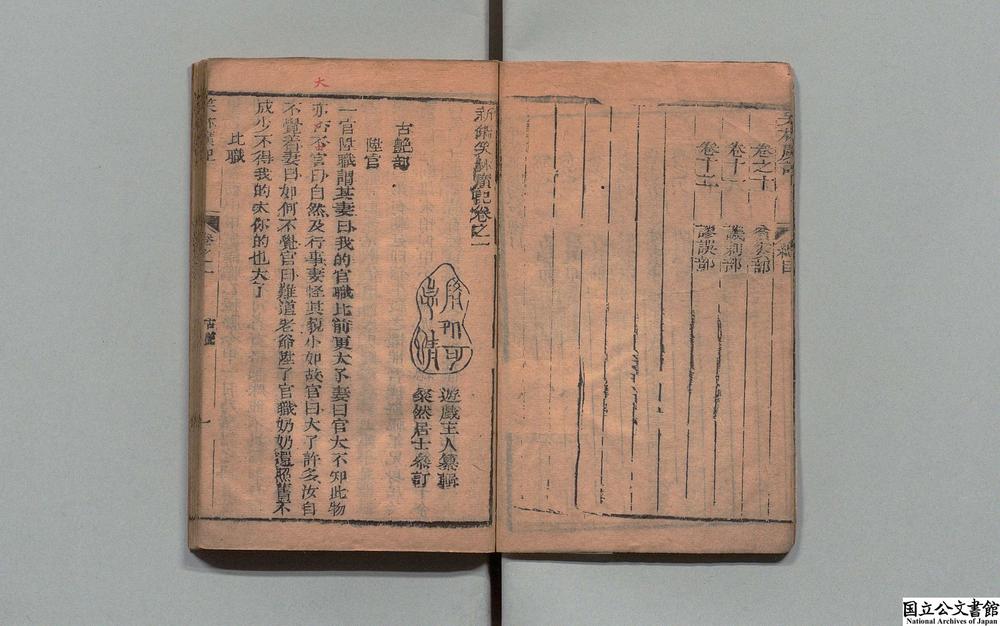 笑林廣記
總目
卷之十
卷十一 譏刺部
卷十二 謬誤部
新鐫笑林廣記卷之一
遊戲主人纂輯
粲然居士參訂
古艷部
陞官
一官陞職謂其妻曰我的官職比前更大了妻曰官大不知此物
亦大不官曰自然及行事妻怪其藐小如故官曰大了許多汝自
不覺着妻曰如何不覺官曰難道老爺陞了官職奶奶還照舊不
成少不得我的大你的也大了
比職
笑林廣記
卷之一
古艷
一
大
国立公文書館
National Archives of Japan